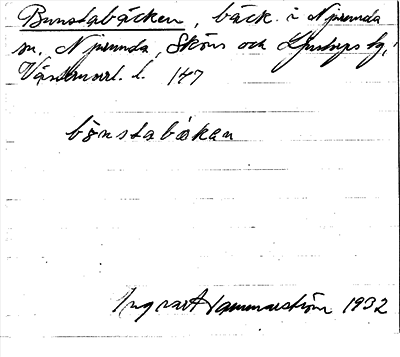 Bunstabäcken, bäck i Njurunda
sn, Njurunda, Sköns och Ljustorps tg,
Västernorrl. l. 147
bönstabäkan
Ingvar Hammarström 1932